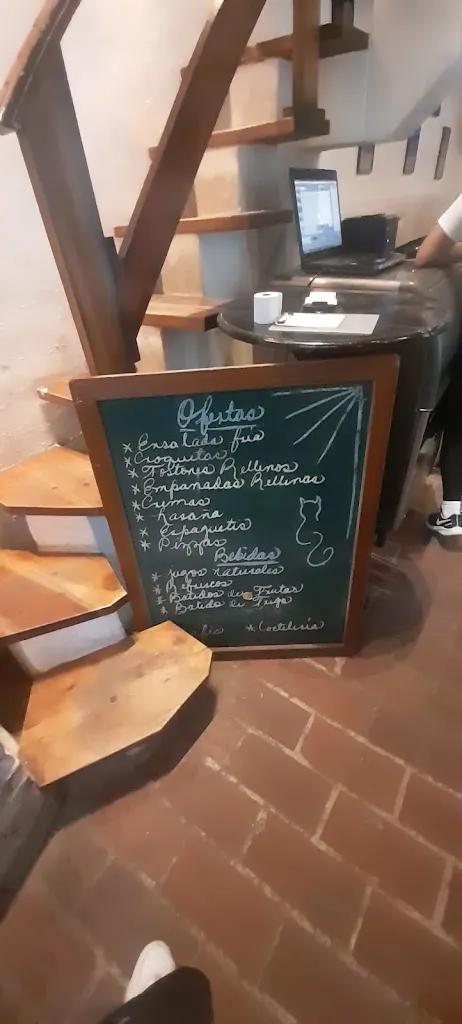 Ofertas
* Ensalada fria
* Croquetas
* Tostones Rellenos
* Empanadas Rellenas
* Cremas
* Lasaña
* Espaguetis
* Pizzas
Bebidas
* Jugos naturales
* Refrescos
* Batidos de Frutas
* Batido de Trigo
* Coctelería